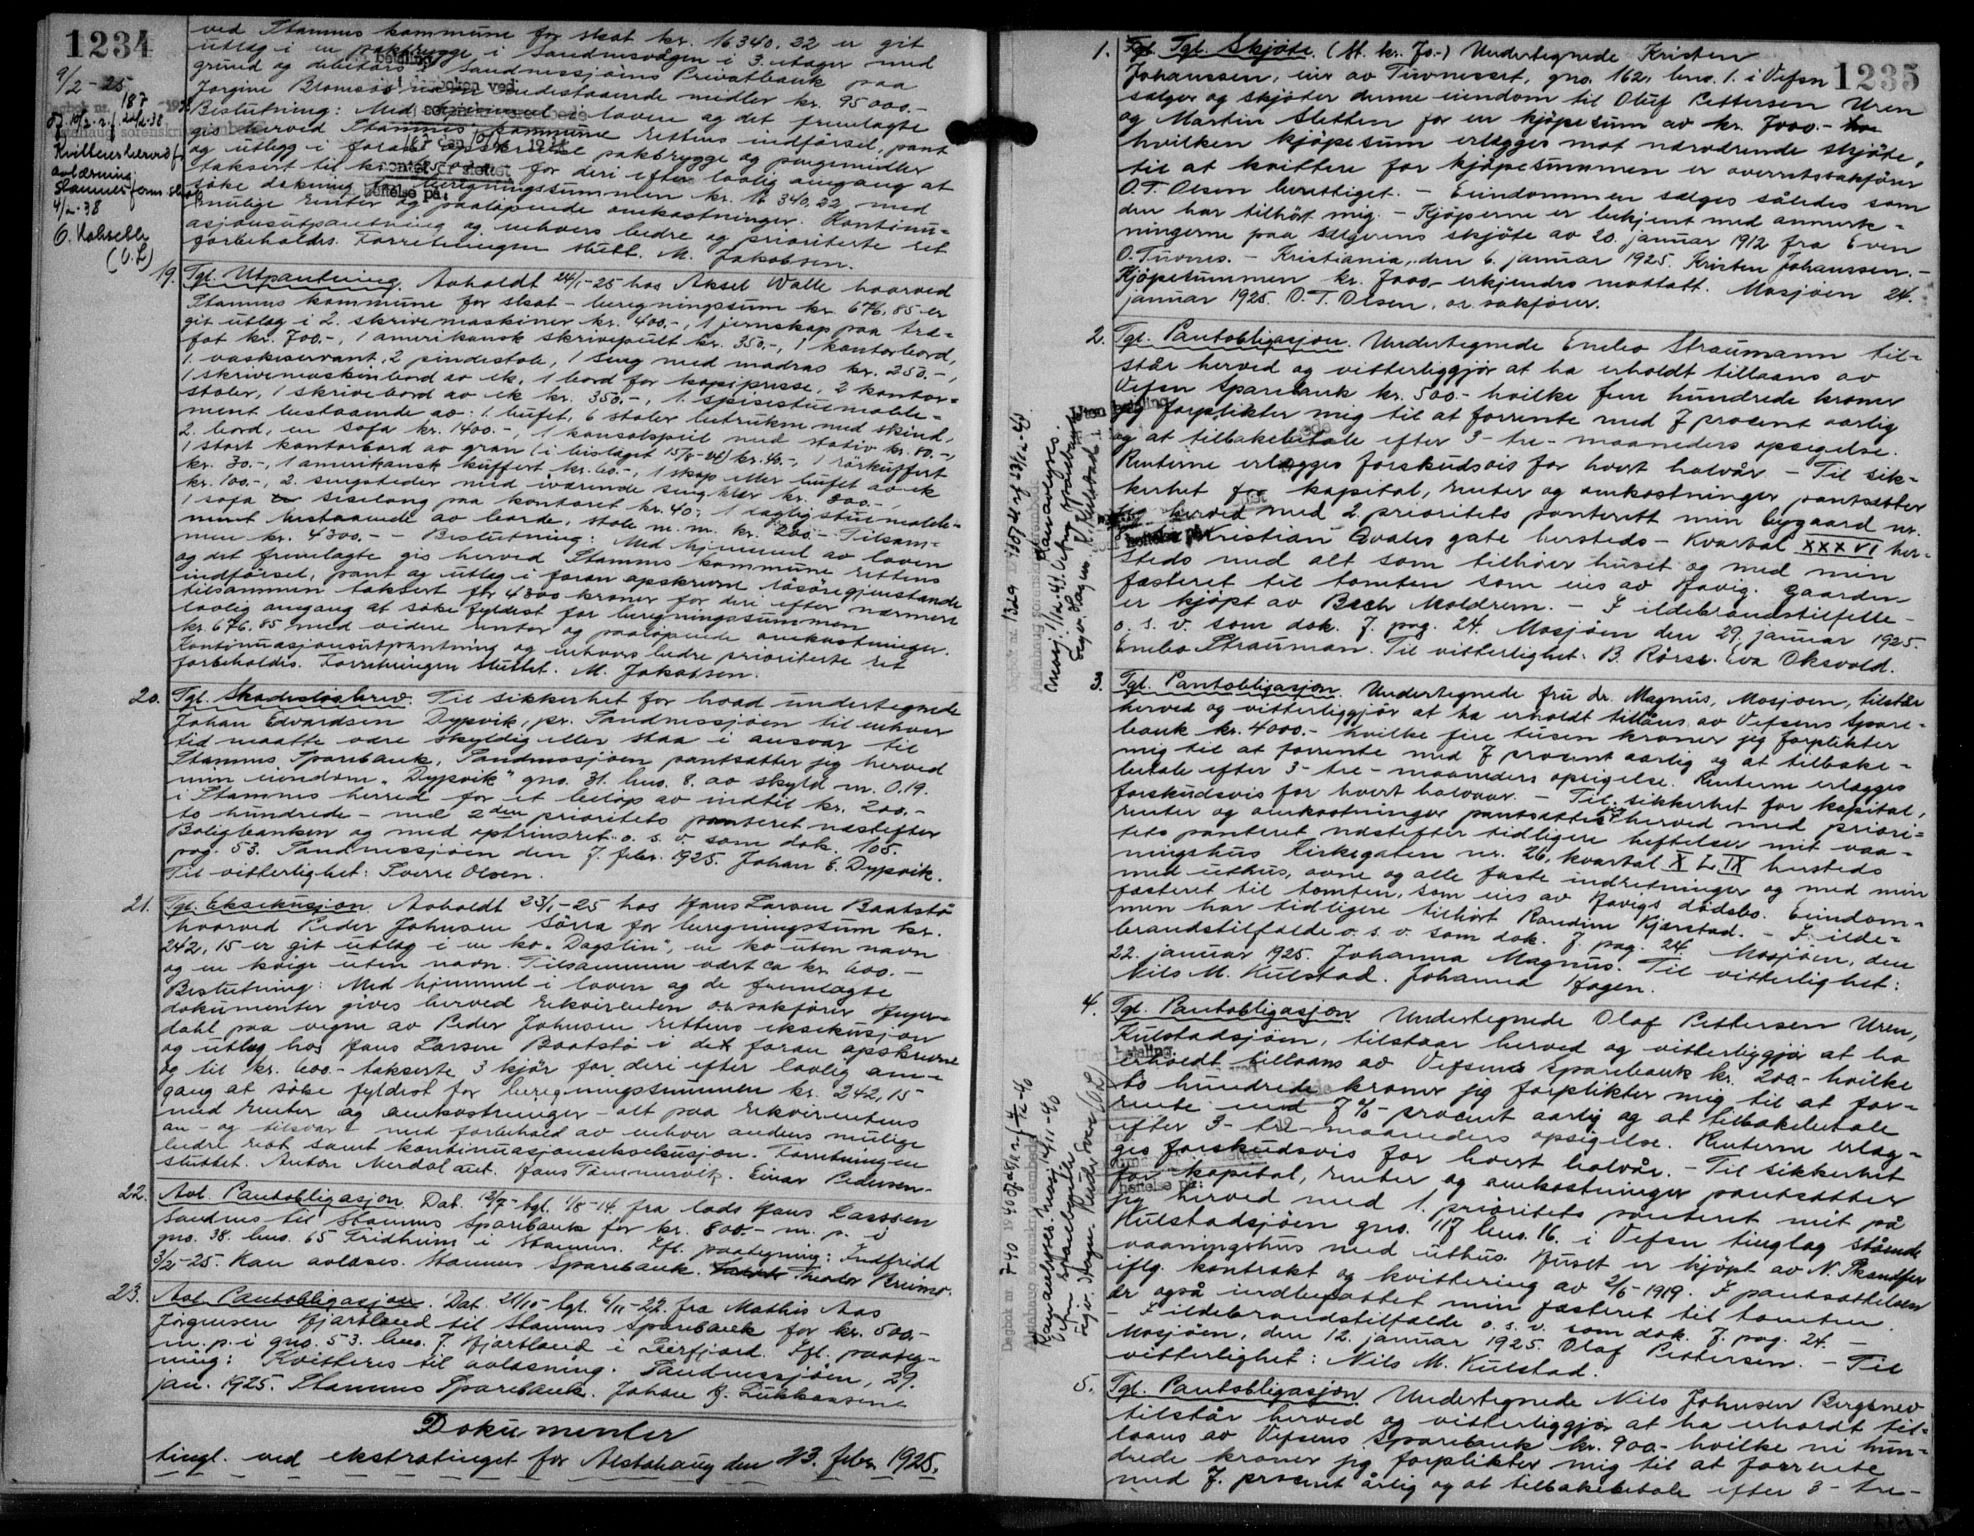 1234
ved Stamnes kommune for skat kr. 16.340,22 er git
utlæg i en pakbrygge i Sandnesvågen i 3. etager med
grund og debitors i Sandnessjøens Privatbank paa
Jørgine Blomsøs indestaaende midler kr. 95000.-
Beslutning: Med hjemmel i loven og det fremlagte
gis herved Stamnes kommune rettens indførsel, pant
og utlegg i foran pakbrygge og pengemidler
taksert til kr. for deri efter lovlig omgang at
søke dekning for beregningssummen kr. 16340,22 med
mulige renter og paaløpende omkostninger. Kontinu-
asjonsutpantning og enhvers bedre og prioriterte ret
forbeholdes. Forretningen sluttt. M. Jakobsen.
9/2-25
187
Kvitteres herved f.
avlæsning
4/2-38
19. Tgl. Utpantning. Avholdt 24/1-25 hos Aksel Walle hvorved
Stamnes kommune for skat - beregningssum kr. 676,85 er
git utlæg i 2. skrivemaskiner kr. 400.-, 1 jernskap paa træ-
fot kr. 700.-, 1 amerikansk skrivepult kr. 350.-, 1 kontorbord,
1. vaskeservant, 2 pindestole, 1 seng med madras kr. 250.-,
1 skrivemaskinbord av ek, 1 bord for kopipresse, 2 kontor-
stoler, 1 skrivebord av ek kr. 350.-, 1. spisestuemøble-
ment bestaaende av: 1 bufet, 6 stoler betrukne med skind,
2. bord, en sofa kr. 1400.-, 1 konsolspeil med stativ kr. 80.-,
1 stort kontorbord av gran (i beslaget 15/11-24) kr. 40.-, 1 rørkuffert
kr. 30.-, 1 amerikansk kuffert kr. 60.-, 1 skap eller bufet av ek
kr. 100.-, 2. sengsteder med iværende sengklær kr. 200.-,
1 sofa sesilong paa kontoret kr. 40.- 1 daglig stuemøble-
ment bestaaende av borde, stole m.m. kr. 200.- Tilsam-
men kr. 4300.- - Beslutning: Med hjemmel av loven
og det fremlagte gis herved Stamnes kommune rettens
indførsel, pant og utlæg i foran opskrevne løsøregjenstande
tilsammen taksert for 4300 kroner for deri efter nærmere
lovlig omgang at søke fyldest for beregningssummen
kr. 676.85 med videre renter og paaløpende omkostninger.
Kontinuasjonsutpantning og enhvers bedre prioriterte ret
forbeholdes. Forretningen sluttet. M. Jakobsen.
20. Tgl. Skadesløsbrev. Til sikkerhet for hvad undertegnede
Johan Edvardsen Dypvik, pr. Sandnessjøen til enhver
tid maatte være skyldig eller staa i ansvar til
Stamnes Sparebank, Sandnessjøen pantsætter jeg herved
min eiendom "Dypvik" gno. 31. bno. 8. av skyld m. 0.19.
i Stamnes herred for et beløp av indtil kr. 200.-
to hundrede - med 2den prioritets panteret næstefter
Boligbanken og med optrinsret o.s.v. som dok. 105.
pag. 53. Sandnessjøen den 7. febr. 1925. Johan E. Dypvik.
Til vitterlighet: Sverre Olsen.
21. Tgl. Eksekusjon. Avholdt 23/1-25 hos Hans Larsen Baatstø
hvorved Peder Johnsen Sørra for beregningssum kr.
242,15 er git utlæg i en ko "Dagslin", en ko uten navn
og en kvige uten navn. Tilsammen vært ca kr. 600.-
Beslutning: Med hjemmel i loven og de fremlagte
dokumenter gives herved rekvirenten o.r. sakfører Hyper-
dahl paa vegne av Peder Johnsen rettens eksekusjon
og utlæg hos Hans Larsen Baatstø i de foran opskrevne
og til kr. 600.- takserte 3 kjør for deri efter lovlig om-
gang at søke fyldest for beregningssummen kr. 242,15
med renter og omkostninger - alt paa rekvirentens
an- og tilsvar - med forbehold av enhver andens mulige
bedre rect samt kontinuasjonseksekusjon. Forretningen
sluttet. Anton Merdal aut. Hans Tømmervik. Einar Pedersen.
22. Avl. Pantobligasjon. Dat. 12/7- tgl. 1/8-14. fra lods Hans Larssen
Sandnes til Stamnes Sparebank for kr. 800.- m. p. i
gno. 38. bno. 65 Fridheim i Stamnes. Ifl. paategning: Indfridd
3/2-25. Kan avlæses. Stamnes Sparebank. Theodor Bruimo.
23. Avl. Pantobligasjon. Dat. 21/10- tgl. 6/11-22. fra Mathis Aas
Jørgensen Hjartland til Stamnes Sparebank for kr. 500.-
m. p. i gno. 53. bno. 7. Hjartland i Leirfjord. Ifl. paateg-
ning: Kvitteres til avlæsning. Sandnessjøen, 29.
jan. 1925. Stamnes Sparebank. Johan
Dokumenter
tingl. ved ekstratinget for Alstahaug den 23. febr. 1925.
1235
1. Tgl. Skjøte. (St. kr. 70.-) Undertegnede Kristen
Johanssen, eier av Tuvneset, gno. 162, bno. 1. i Vefsn
sælger og skjøter denne eiendom til Oluf Pettersen Uren
og Martin Sletten for en kjøpesum av kr. 7000.-
hvilken kjøpesum erlægges mot nærværende skjøte,
til at kvittere for kjøpesummen er overretssakfører
O.T. Olsen berettiget. - Eiendommen sælges således som
den har tilhørt mig. - Kjøperne er bekjent med anmerk-
ningerne paa sælgerens skjøte av 20. januar 1912 fra Even
O. Tuvnes. - Kristiania, den 6. januar 1925. Kristen Johanssen. -
Kjøpesummen kr. 7000.- erkjendes mottatt. Mosjøen 24.
januar 1925. O. T. Olsen, o.r. sakfører.
2. Tgl. Pantobligasjon. Undertegnede Enebo Straumann til-
står herved og vitterliggjør at ha erholdt tillaans av
Vefsn Sparebank kr. 500.- hvilke fem hundrede kroner
jeg forplikter mig til at forrente med 7 procent aarlig
og at tilbakebetale efter 3- tre- maaneders opsigelse.
Renterne erlægges forskudsvis for hvert halvår - Til sik-
kerhet for kapital, renter og omkostninger pantsætter
jeg herved med 2. prioritets panterett min bygaard nr.
Kristian Qvales gate hersteds - Kvartal XXXVI her-
steds med alt som tilhører huset og med min
fæsteret til tomten som eies av Havig. Gaarden
er kjøpt av Bech Moldrem. - I ildebrandstilfelle
o.s.v. som dok. 7. pag. 24. Mosjøen den 29. januar 1925.
Enebo Strauman. Til vitterlighet: B. Rørse. Eva Oksvold.
3. Tgl. Pantobligasjon. Undertegnede fru dr. Magnus, Mosjøen, tilstår
herved og vitterliggjør at ha erholdt tillåns av Vefsens Spare-
bank kr. 4000.- hvilke fire tusen kroner jeg forplikter
mig til at forrente med 7 procent aarlig og at tilbake-
betale efter 3- tre- maaneders opsigelse. Renterne erlægges
forskudsvis for hvert halvaar. - Til sikkerhet for kapital,
renter og omkostninger pantsætter jeg herved med priori-
tets panteret næstefter tidligere heftelser mit vaa-
ningshus Kirkegaten nr. 26, kvartal X L IX hersteds
med uthus, ovne og alle faste indretninger og med min
fæsteret til tomten, som eies av Havigs dødsbo. Eiendom-
men har tidligere tilhørt Randine Kjærstad. - I ilde-
brandstilfælde o.s.v. som dok. 7. pag. 24. Mosjøen, den
22. januar 1925. Johanna Magnus. Til vitterlighet:
Nils M. Kulstad. Johanna Hagen.
4. Tgl. Pantobligasjon. Undertegnede Olaf Pettersen Uren,
Kulstadsjøen, tilstaar herved og vitterliggjør at ha
erholdt tillaans av Vefsens Sparebank kr. 200.- hvilke
to hundrede kroner jeg forplikter mig til at for-
rente med 7%- procent aarlig og at tilbakebetale
efter 3- tre- maaneders opsigelse. Renterne erlæg-
ges forskudsvis for hvert halvår. - Til sikkerhet
for kapital, renter og omkostninger pantsætter
jeg herved med 1. prioritets panteret mit på
Kulstadsjøen gno. 117 bno. 16. i Vefsn tinglag stående
vaaningshus med uthus. Huset er kjøpt av N. Skandfer
iflg. kontrakt og kvittering av 2/6-1919. I pantsættelsen
er også indbefattet min fæsteret til tomten.
- I ildebrandstilfælde o.s.v. som dok. 7. pag. 24. -
Mosjøen, den 12. januar 1925. Olaf Pettersen. - Til
vitterlighet: Nils M. Kulstad.
5. Tgl. Pantobligasjon. Undertegnede Nils Johnsen Bergsnev
tilstår herved og vitterliggjør at ha erholdt til-
laans av Vefsens Sparebank kr. 900.- hvilke ni hun-
drede kroner jeg forplikter mig til at forrente
med 7. procent årlig og at tilbakebetale efter 3- tre-